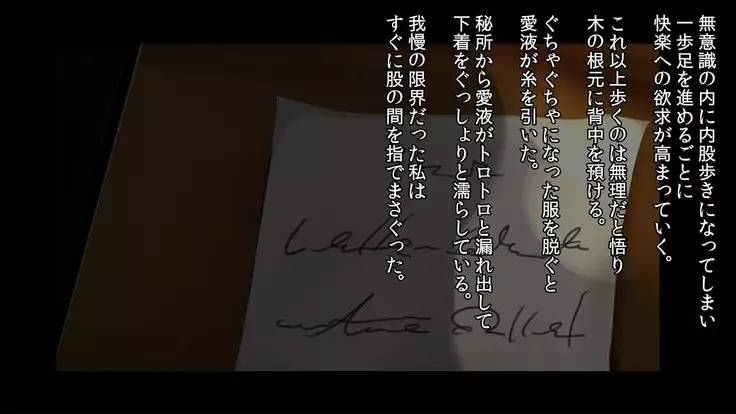 無意識の内に内股歩きになってしまい
一歩足を進めるごとに
快楽への欲求が高まっていく。
これ以上歩くのは無理だと悟り
木の根元に背中を預ける。
ぐちゃぐちゃになった服を脱ぐと
愛液が糸を引いた。
秘所から愛液がトロトロと漏れ出して
下着をぐっしょりと濡らしている。
我慢の限界だった私は
すぐに股の間を指でまさぐった。